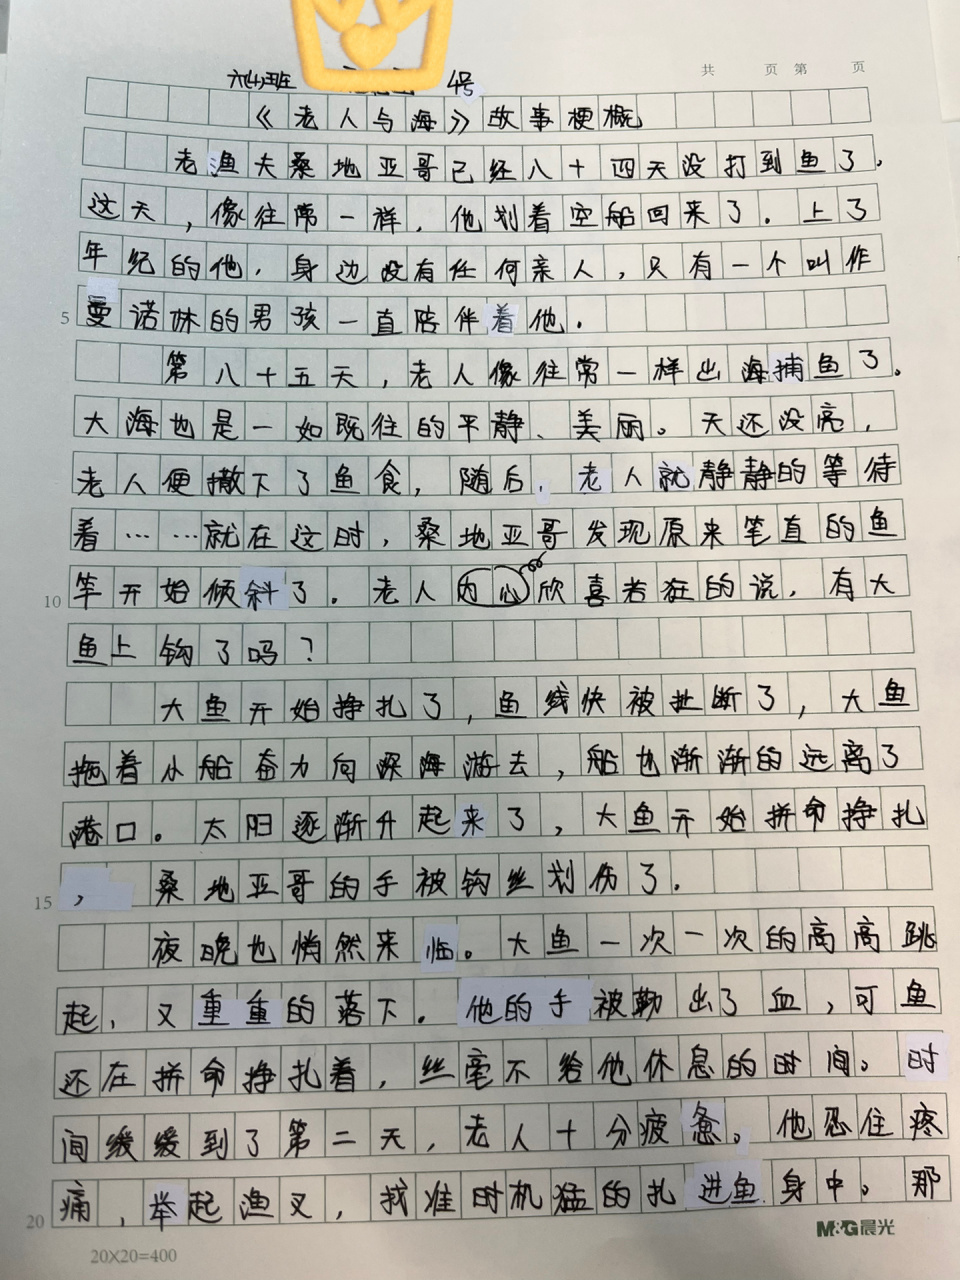 共 页 第 页
六(4)班 4号
《老人与海》故事梗概
老渔夫桑地亚哥已经八十四天没打到鱼了,
这天,像往常一样,他划着空船回来了.上了
年纪的他,身边没有任何亲人,只有一个叫作
5 曼诺林的男孩一直陪伴着他.
第八十五天,老人像往常一样出海捕鱼了。
大海也是一如既往的平静、美丽。天还没亮,
老人便撒下了鱼食,随后,老人就静静的等待
着……就在这时,桑地亚哥发现原来笔直的鱼
10 竿开始倾斜了.老人内心欣喜若狂的说,有大
鱼上钩了吗?
大鱼开始挣扎了,鱼线快被扯断了,大鱼
拖着小船奋力向深海游去,船也渐渐的远离了
港口。太阳逐渐升起来了,大鱼开始拼命挣扎
15 ,桑地亚哥的手被钩丝划伤了.
夜晚也悄然来临。大鱼一次一次的高高跳
起,又重重的落下。他的手被勒出了血,可鱼
还在拼命挣扎着,丝毫不给他休息的时间。时
间缓缓到了第二天,老人十分疲惫。他忍住疼
20 痛,举起渔叉,找准时机猛的扎进鱼身中。那
20X20=400
M&G晨光